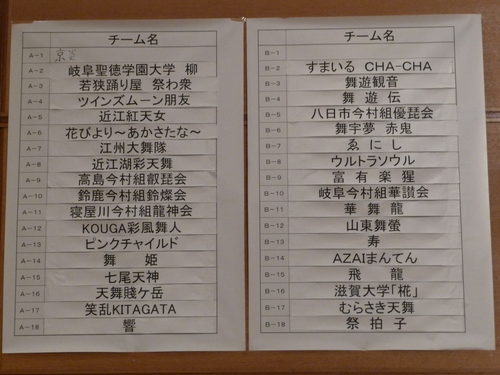 チーム名
A-1
A-2 岐阜聖徳学園大学 柳
A-3 若狭踊り屋 祭わ衆
A-4 ツインズムーン朋友
A-5 近江紅天女
A-6 花びより～あかさたな～
A-7 江州大舞隊
A-8 近江湖彩天舞
A-9 高島今村組叡琵会
A-10 鈴鹿今村組鈴燦会
A-11 寝屋川今村組龍神会
A-12 KOUGA彩風舞人
A-13 ピンクチャイルド
A-14 舞 姫
A-15 七尾天神
A-16 天舞賤ケ岳
A-17 笑乱KITAGATA
A-18 響
チーム名
B-1
B-2 すまいる CHA-CHA
B-3 舞遊観音
B-4 舞 遊 伝
B-5 八日市今村組優琵会
B-6 舞宇夢 赤鬼
B-7 ゑ に し
B-8 ウルトラソウル
B-9 富 有 楽 猩
B-10 岐阜今村組華讃会
B-11 華 舞 龍
B-12 山東舞螢
B-13 寿
B-14 AZAIまんてん
B-15 飛 龍
B-16 滋賀大学「椛」
B-17 むらさき天舞
B-18 祭 拍 子